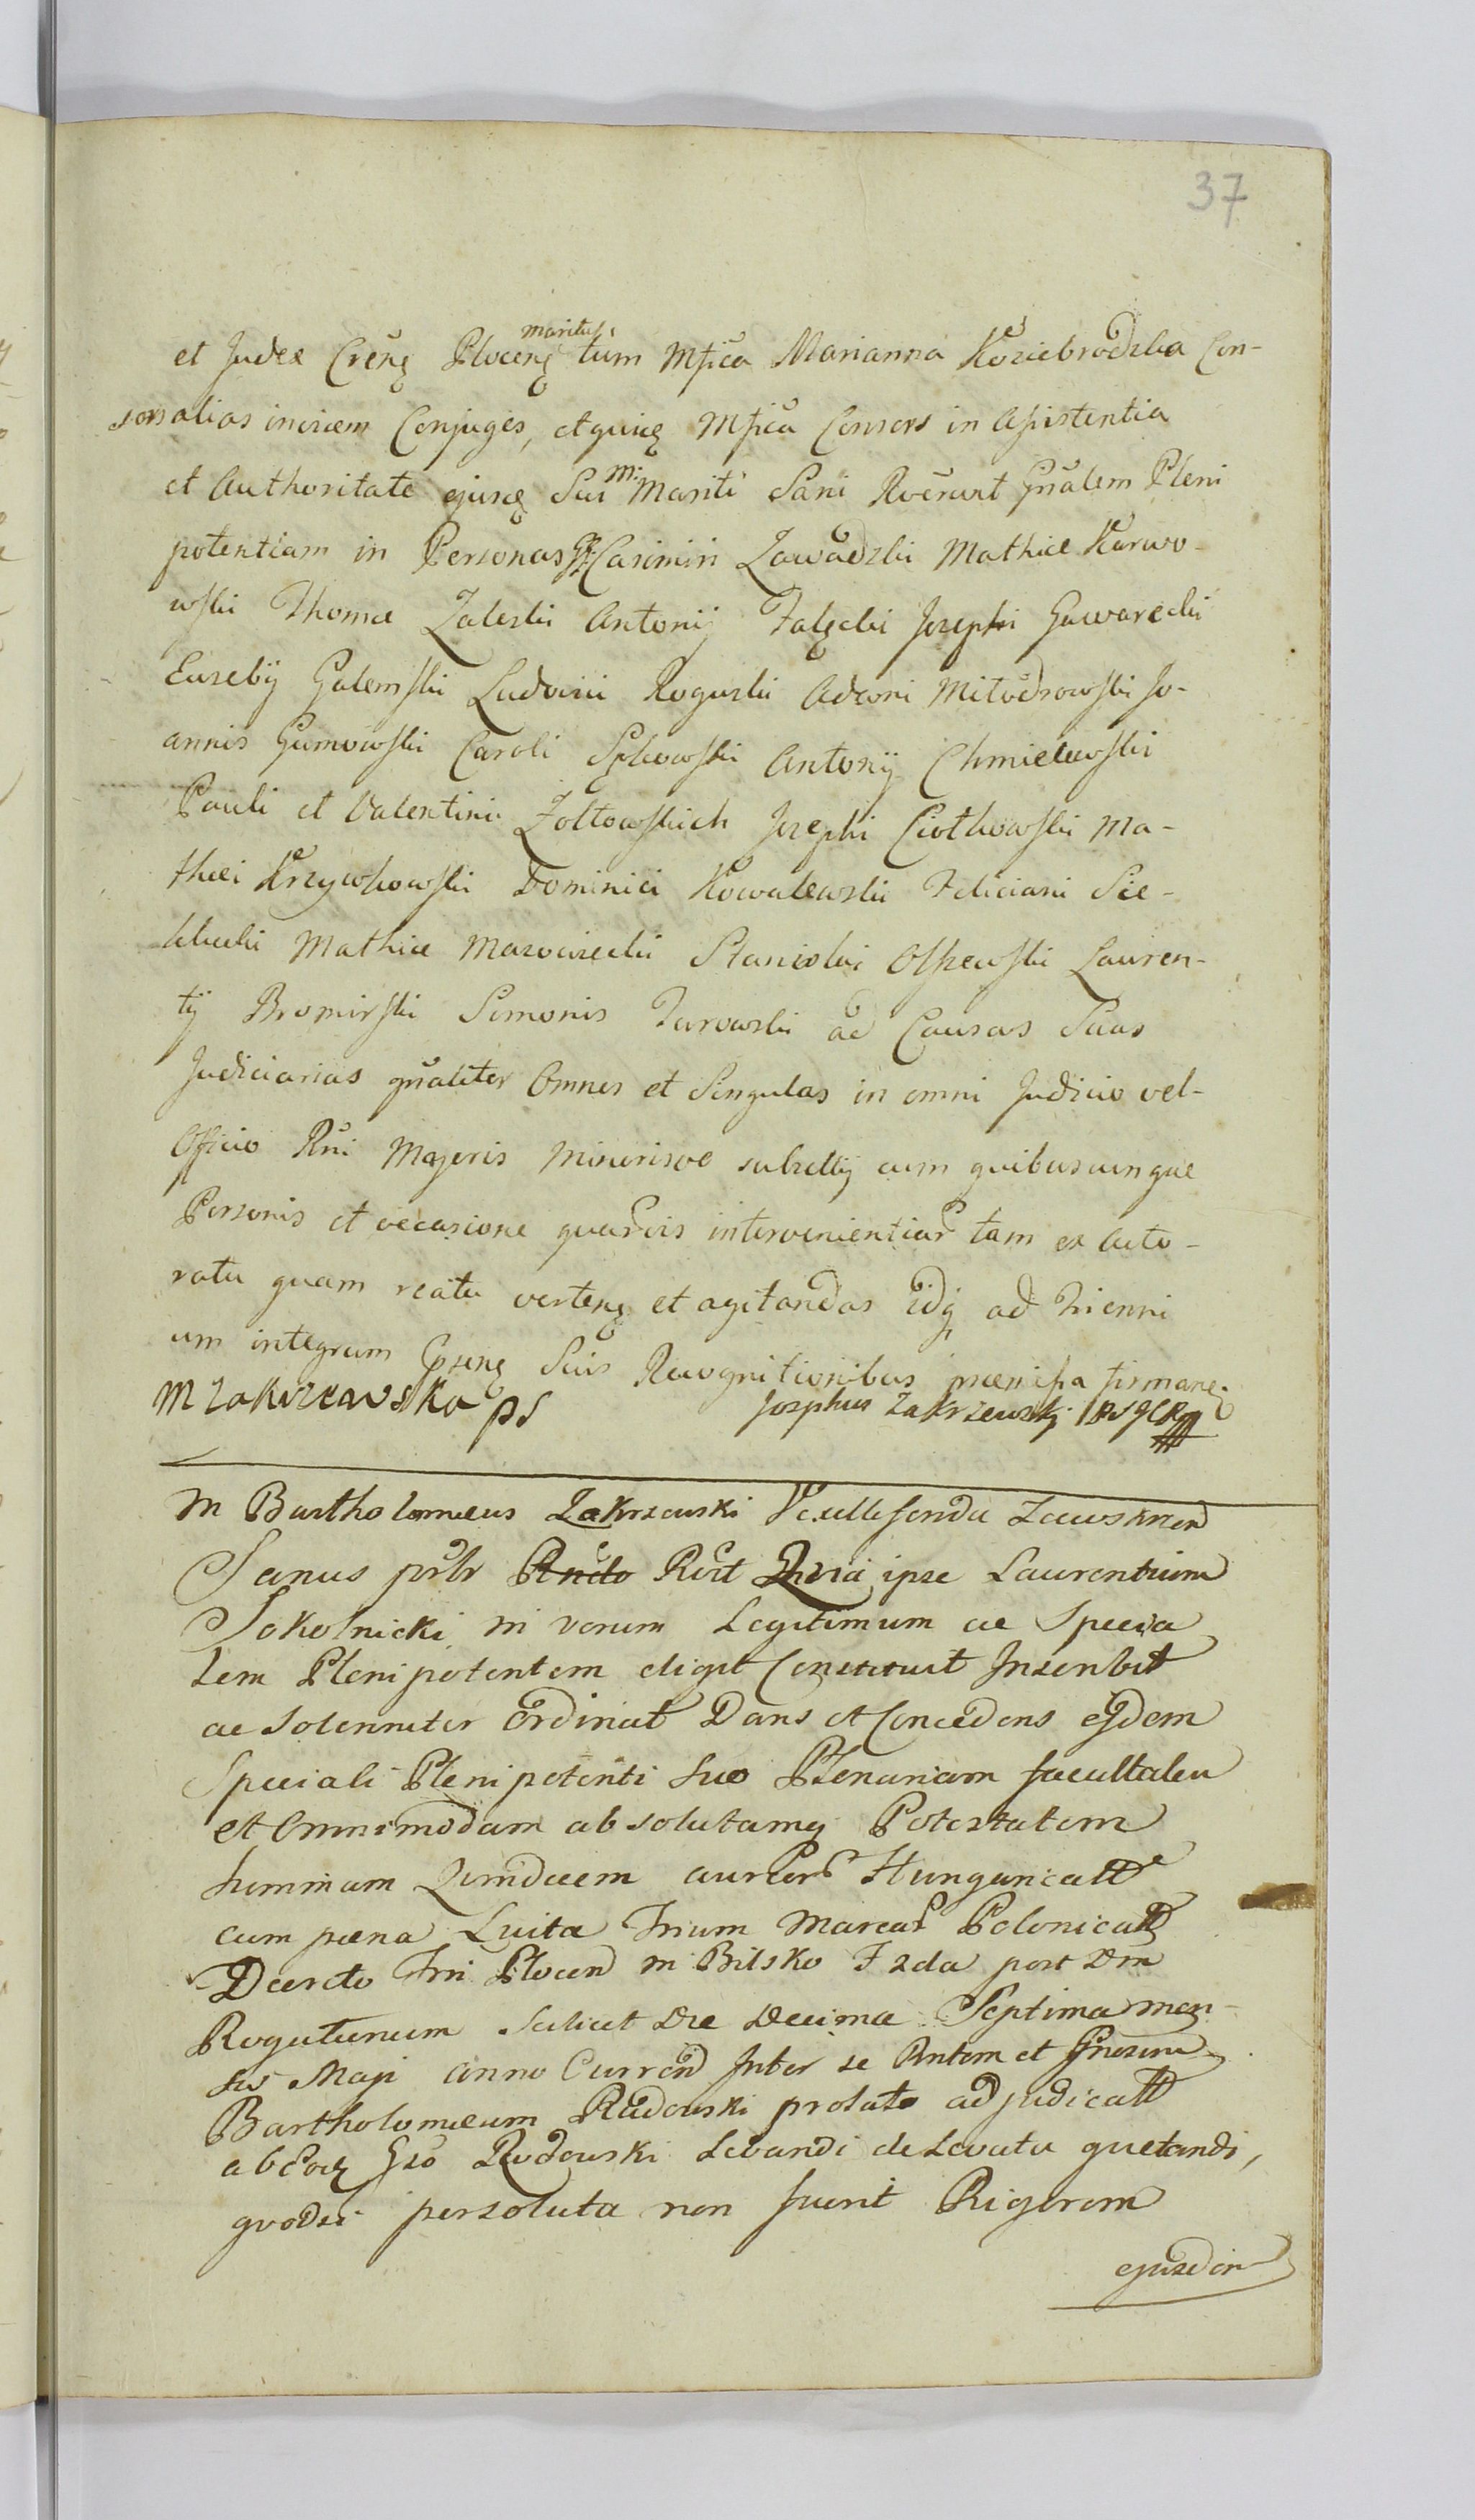 37
maritus
et Judex Crens Plocens tum Mfica Marianna Koziebrodzka Con-
sors alias invicem Conjuges, et quice Mfica Consors in Assistentia
et Authoritate ejusce Sui Mi Mariti Sani Roverunt Gnalem Pleni
potentiam in Personas GG Casimiri Zawadzki Mathiæ Karwo-
wski Thomæ Zaleski Antonij Falęcki Josephi Gawarecki
Eusebij Golemski Ludovici Roguski Adami Mitodrowski Jo-
annis Gumowski Caroli Antonij Chmielewski
Pauli et Valentini Zołtowskich Josephi Ciołkowski Ma-
thei Krzywkowski Dominici Kowalewski Feliciani Sie-
klucki Mathiæ Mazowiecki Stanislai Olszewski Lauren-
tij Bromirski Simonis Turowski ad Causas Suas
Judiciarias gnaliter Omnes et Singulas in omni Judicio vel-
Officio Rni Majoris Minorisve subsellij cum quibuscunque
Personis et occasione quarvis intervenientiar tam ex Acto-
ratu quam reatu verteng et agitandas idq ad trienni
um integrum Suis Recognitionibus præmissa firmane
M Zakrzewska ps Josephus Zakrzewskj
M Bartholomæus Zakrzewski Vexillifonda Zawskrzen
Sanus prtr Rndo Rvit Quia ipse Laurentium
Sokolnicki in verum Legitimum ac Specia
lem Plenipotentem eligit Constituit Inscribit
ac Solenniter Ordinat Dans et Concedens ejdem
Speciali Plenipotenti suo Plenariam facultatem
et Omnimodam absolutamq Potestatem
summam Quindecem aureor Hungarical
cum pæna Luita Trium Marcar Polonical
Decreto Trii Plocen in Bilsko F 2da post Dm
Rogationum Scilicet Die Decima Septima men-
sis Maji Anno Curren Inter se Rntem et
Bartholomæum Rudowski prolato adjudicatt
ab Gso Rudowski Levandi de Levata quetandi,
quodsi persoluta non fuerit Rigorem
ejusdem